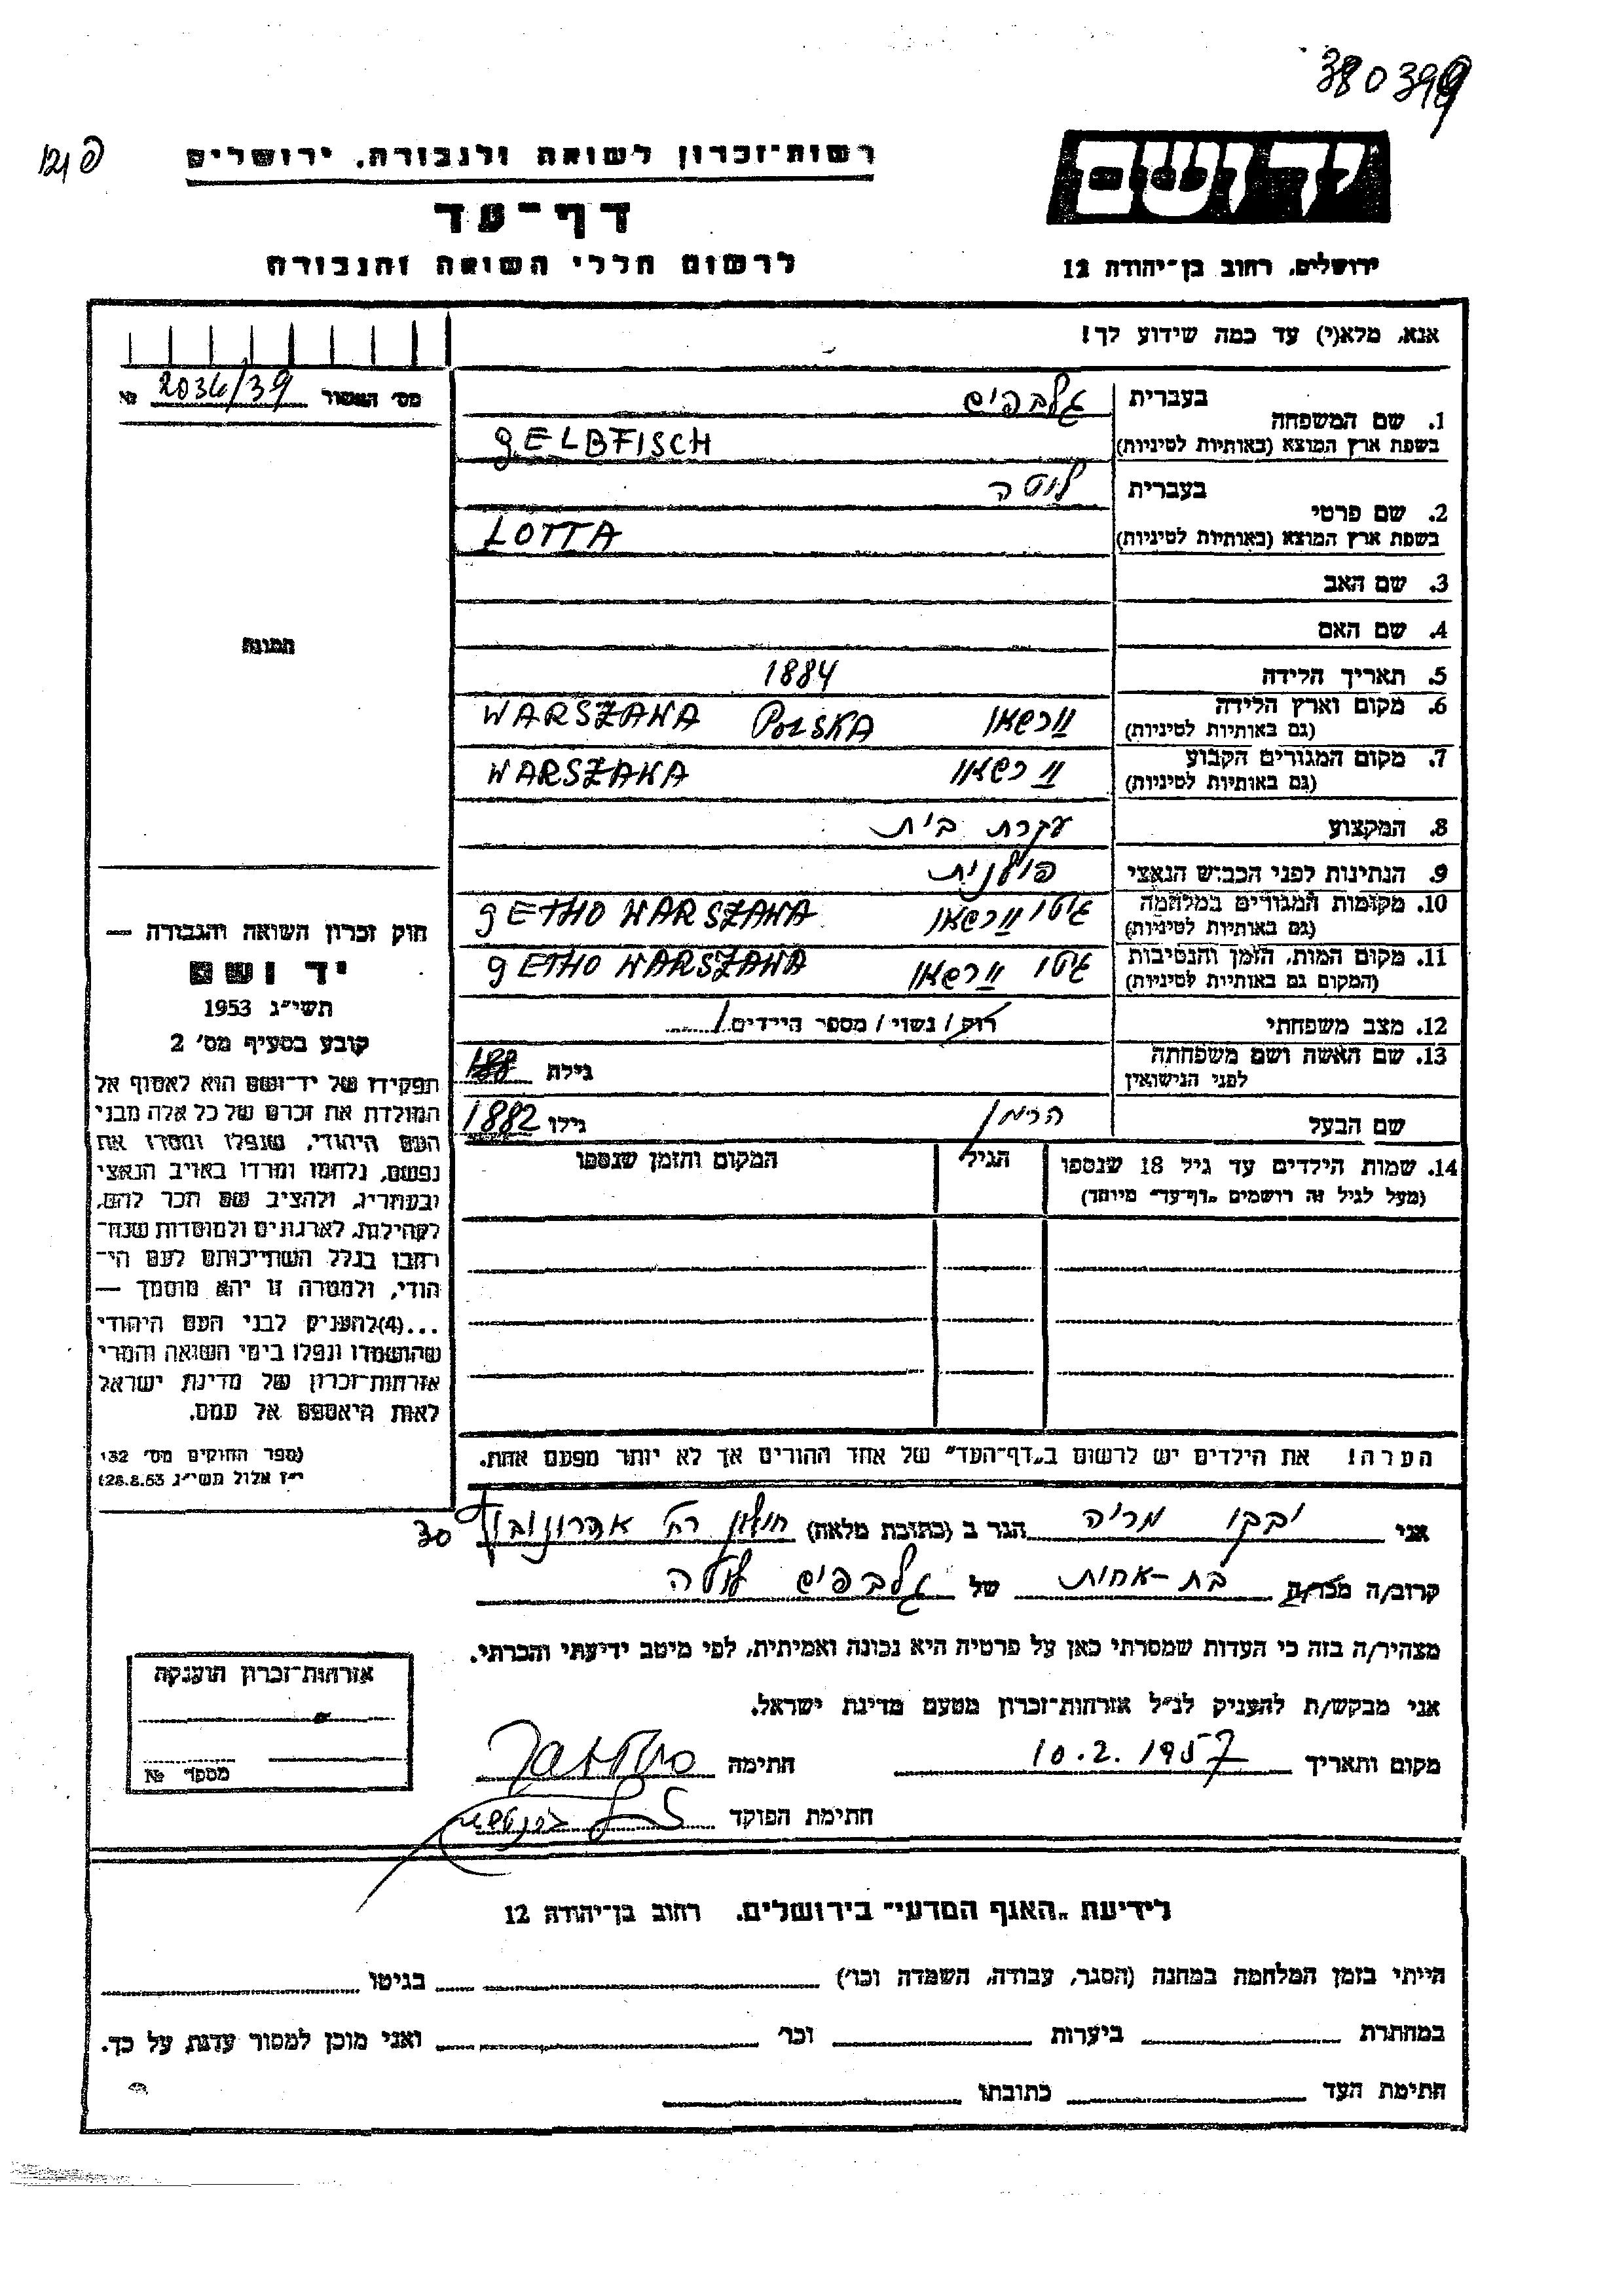 380399
רשות־זכרון לשואה ולגבורה, ירושלים
דף־עד
לרשום חללי השואה והגבורה
יד ושם
ירושלים, רחוב בן־יהודה 12
אנא, מלא(י) עד כמה שידוע לך!
מס׳ 2036/39 №
1. שם המשפחה
בעברית גלבפיש
בשפת ארץ המוצא (באותיות לטיניות) GELBFISCH
2. שם פרטי
בעברית לוטה
בשפת ארץ המוצא (באותיות לטיניות) LOTTA
3. שם האב
4. שם האם
5. תאריך הלידה 1884
6. מקום וארץ הלידה ורשאו WARSZAWA POLSKA
(גם באותיות לטיניות)
7. מקום המגורים הקבוע ורשאו WARSZAWA
(גם באותיות לטיניות)
8. המקצוע עקרת בית
9. הנתינות לפני הכבוש הנאצי פולנית
10. מקומות המגורים במלחמה גיטו ורשאו GETHO WARSZAWA
(גם באותיות לטיניות)
11. מקום המות, הזמן והנסיבות גיטו ורשאו GETHO WARSZAWA
(המקום גם באותיות לטיניות)
12. מצב משפחתי רוק / נשוי / מספר הילדים 1
13. שם האשה ושם משפחתה
לפני הנישואין
גילה
שם הבעל הרמן גילו 1882
14. שמות הילדים עד גיל 18 שנספו הגיל המקום והזמן שנספו
(מעל לגיל זה רושמים „דף־עד״ מיוחד)
הערה! את הילדים יש לרשום ב„דף־העד״ של אחד ההורים אך לא יותר מפעם אחת.
תמונה
חוק זכרון השואה והגבורה —
יד ושם
תשי״ג 1953
קובע בסעיף מס׳ 2
תפקידו של יד־ושם הוא לאסוף אל
המולדת את זכרם של כל אלה מבני
העם היהודי, שנפלו ומסרו את
נפשם, נלחמו ומרדו באויב הנאצי
ובעוזריו, ולהציב שם וזכר להם,
לקהילות, לארגונים ולמוסדות שנח־
רבו בגלל השתייכותם לעם הי־
הודי, ולמטרה זו יהא מוסמך —
...(4)להעניק לבני העם היהודי
שהושמדו ונפלו בימי השואה והמרי
אזרחות־זכרון של מדינת ישראל
לאות היאספם אל עמם.
(ספר החוקים מס׳ 132
י״ז אלול תשי״ג 28.8.53)
אני מריה הגר ב (כתובת מלאה) חולון רח׳ אהרונוביץ 30
קרוב/ה מכר/ה בת-אחות של גלבפיש לוטה
מצהיר/ה בזה כי העדות שמסרתי כאן על פרטיה היא נכונה ואמיתית, לפי מיטב ידיעתי והכרתי.
אני מבקש/ת להעניק לנ״ל אזרחות־זכרון מטעם מדינת ישראל.
מקום ותאריך 10.2.1957 חתימה
חתימת הפוקד
אזרחות־זכרון הוענקה
מספר №
לידיעת „האגף המדעי״ בירושלים, רחוב בן־יהודה 12
הייתי בזמן המלחמה במחנה (הסגר, עבודה, השמדה וכו׳) בגיטו
במחתרת ביערות וכו׳ ואני מוכן למסור עדות על כך.
חתימת העד כתובתו